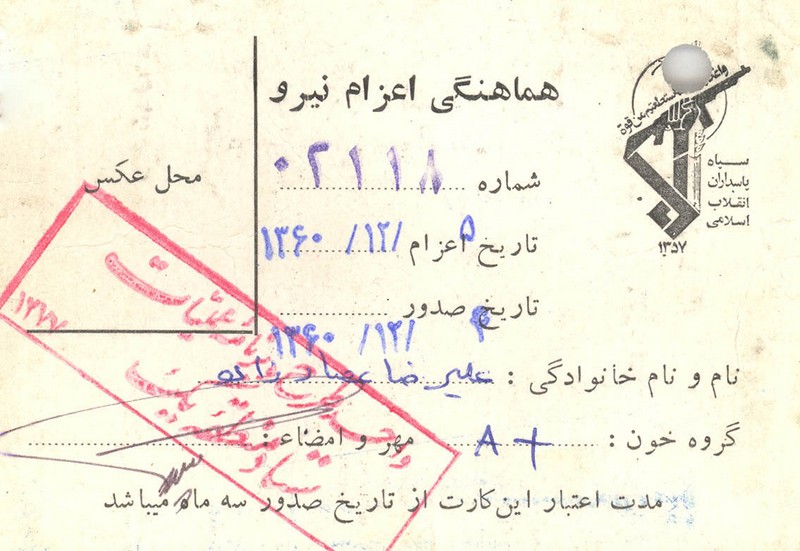 هماهنگی اعزام نیرو
سپاه
پاسداران
انقلاب
اسلامی
۱۳۵۷
شماره ۰۲۱۱۸
محل عکس
تاریخ اعزام ۵ /۱۲/ ۱۳۶۰
تاریخ صدور ۴ /۱۲/ ۱۳۶۰
نام و نام خانوادگی : علیرضا
گروه خون : A+
مهر و امضاء :
مدت اعتبار این کارت از تاریخ صدور سه ماه میباشد